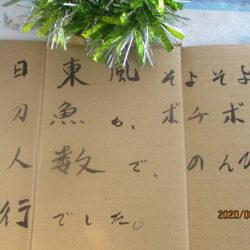 日東風そよそよ
刀魚も、ボチボ
人数で、のんび
行でした。